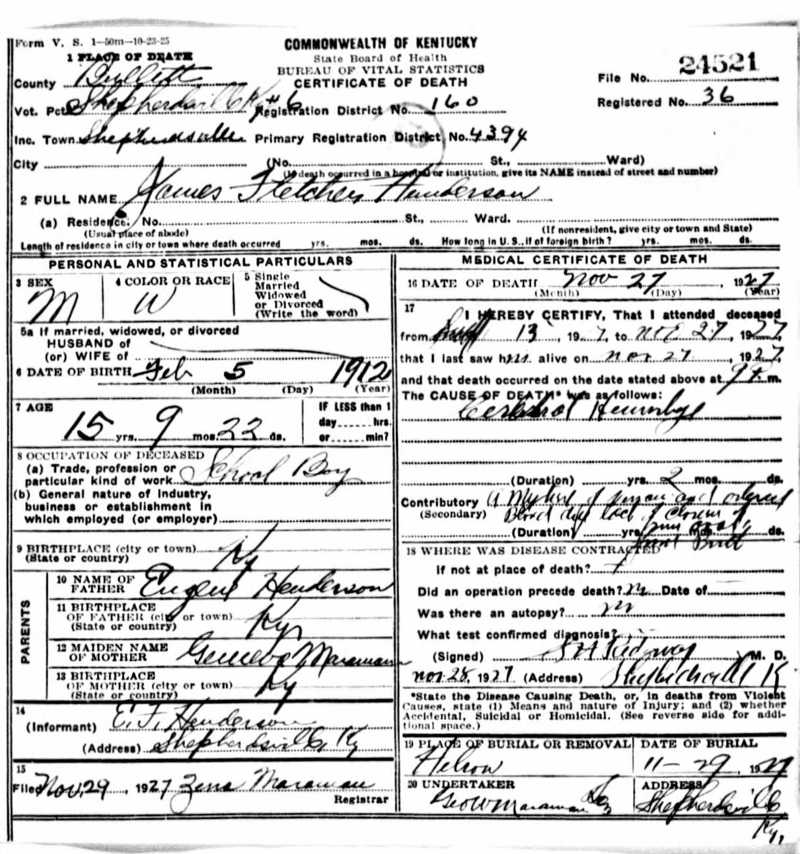 Form V. S. 1—50m—10-23-25
COMMONWEALTH OF KENTUCKY
State Board of Health
BUREAU OF VITAL STATISTICS
CERTIFICATE OF DEATH
1 PLACE OF DEATH
County Bullitt
File No. 24521
Vot. Pct. Shepherdsville Ky #6 Registration District No. 160
Registered No. 36
Inc. Town Shepherdsville Primary Registration District No. 4394
City (No. St., Ward)
(If death occurred in a hospital or institution, give its NAME instead of street and number)
2 FULL NAME James Fletcher Henderson
(a) Residence. No. St., Ward.
(Usual place of abode) (If nonresident, give city or town and State)
Length of residence in city or town where death occurred yrs. mos. ds. How long in U.S., if of foreign birth? yrs. mos. ds.
PERSONAL AND STATISTICAL PARTICULARS
3 SEX M
4 COLOR OR RACE W
5 Single Married Widowed or Divorced (Write the word)
5a If married, widowed, or divorced
HUSBAND of
(or) WIFE of
6 DATE OF BIRTH Feb 5 1912
(Month) (Day) (Year)
7 AGE
15 yrs. 9 mos. 22 ds.
IF LESS than 1
day---- hrs.
or---- min?
8 OCCUPATION OF DECEASED
(a) Trade, profession or
particular kind of work School Boy
(b) General nature of Industry,
business or establishment in
which employed (or employer)
9 BIRTHPLACE (city or town)
(State or country) Ky
PARENTS
10 NAME OF
FATHER Eugene Henderson
11 BIRTHPLACE
OF FATHER (city or town)
(State or country) Ky
12 MAIDEN NAME
OF MOTHER Geneva Maraman
13 BIRTHPLACE
OF MOTHER (city or town)
(State or country) Ky
14
(Informant) E. F. Henderson
(Address) Shepherdsville, Ky
15
Filed Nov. 29 1927 Zena Maraman
Registrar
MEDICAL CERTIFICATE OF DEATH
16 DATE OF DEATH Nov 27 1927
(Month) (Day) (Year)
17
I HEREBY CERTIFY, That I attended deceased
from 13, 19 7, to Nov 27 1927
that I last saw him alive on Nov 27, 1927
and that death occurred on the date stated above at 9 m.
The CAUSE OF DEATH* was as follows:
Cerebral
(Duration) yrs. 2 mos. ds.
Contributory
(Secondary) Blood lack of
(Duration)
18 WHERE WAS DISEASE CONTRACTED
If not at place of death?
Did an operation precede death? no Date of
Was there an autopsy? no
What test confirmed diagnosis?
(Signed) Ridgway M. D.
Nov. 28, 1927 (Address) Shepherdsville K
*State the Disease Causing Death, or, in deaths from Violent
Causes, state (1) Means and nature of Injury; and (2) whether
Accidental, Suicidal or Homicidal. (See reverse side for addi-
tional space.)
19 PLACE OF BURIAL OR REMOVAL
DATE OF BURIAL
11-29 1927
20 UNDERTAKER
Geo W Maraman
ADDRESS
Shepherdsville
Ky.